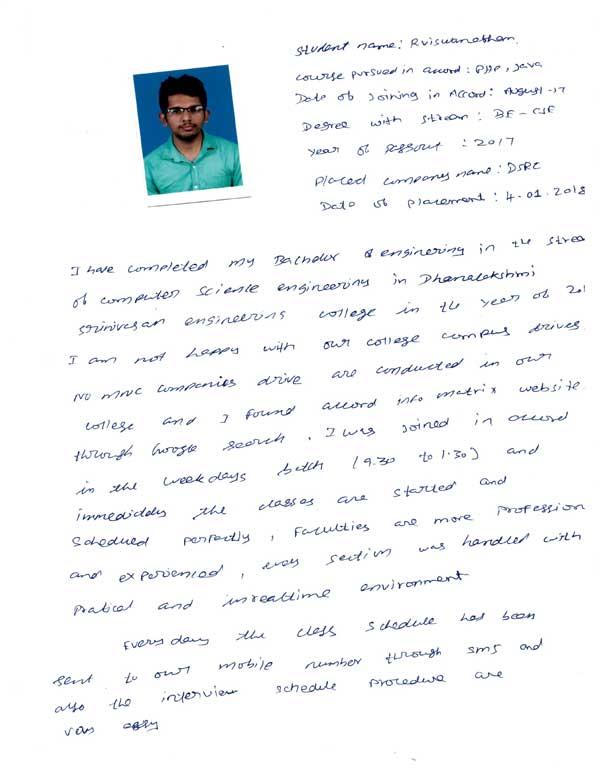 Student name: R viswanathan.
course pursued in accord: PHP, Java
Date of Joining in Accord: August-17
Degree with stream: BE - CSE
year of passout : 2017
placed company name: DSRC
Date of placement: 4.01.2018
I have completed my Bachelor of enginering in the strea
of computer science engineering in Dhanalekshmi
srinivesan engineering college in the year of 201
I am not happy with our college campus drives.
NO MNC companies drive are conducted in our
college and I found accord info matrix website
through Google search. I was joined in accord
in the weekdays batch (9.30 to 1.30) and
immediddely the classes are started and
Scheduled perfectly, Faculties are more profession
and experienced, section was handled with
pratical and inrealtime environment
Every day the class schedule has been
sent to our mobile number through sms and
also the interview schedule procedure are
very easy